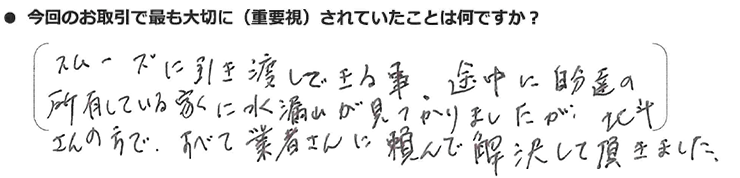 ● 今回のお取引で最も大切に（重要視）されていたことは何ですか？
スムーズに引き渡しできる事、途中に自分達の
所有している家くに水漏れが見つかりましたが、北斗
さんの方で、すべて業者さんに頼んで解決して頂きました、